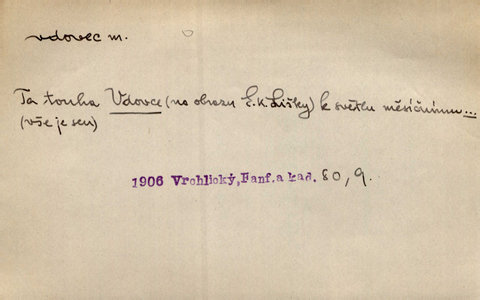 vdovec m.
Ta touha Vdovce (na obrazu E. K. Lišky) k světlu měsíčnímu...
(vše je sen)
1906 Vrchlický, Fanf. a kad. 80, 9.